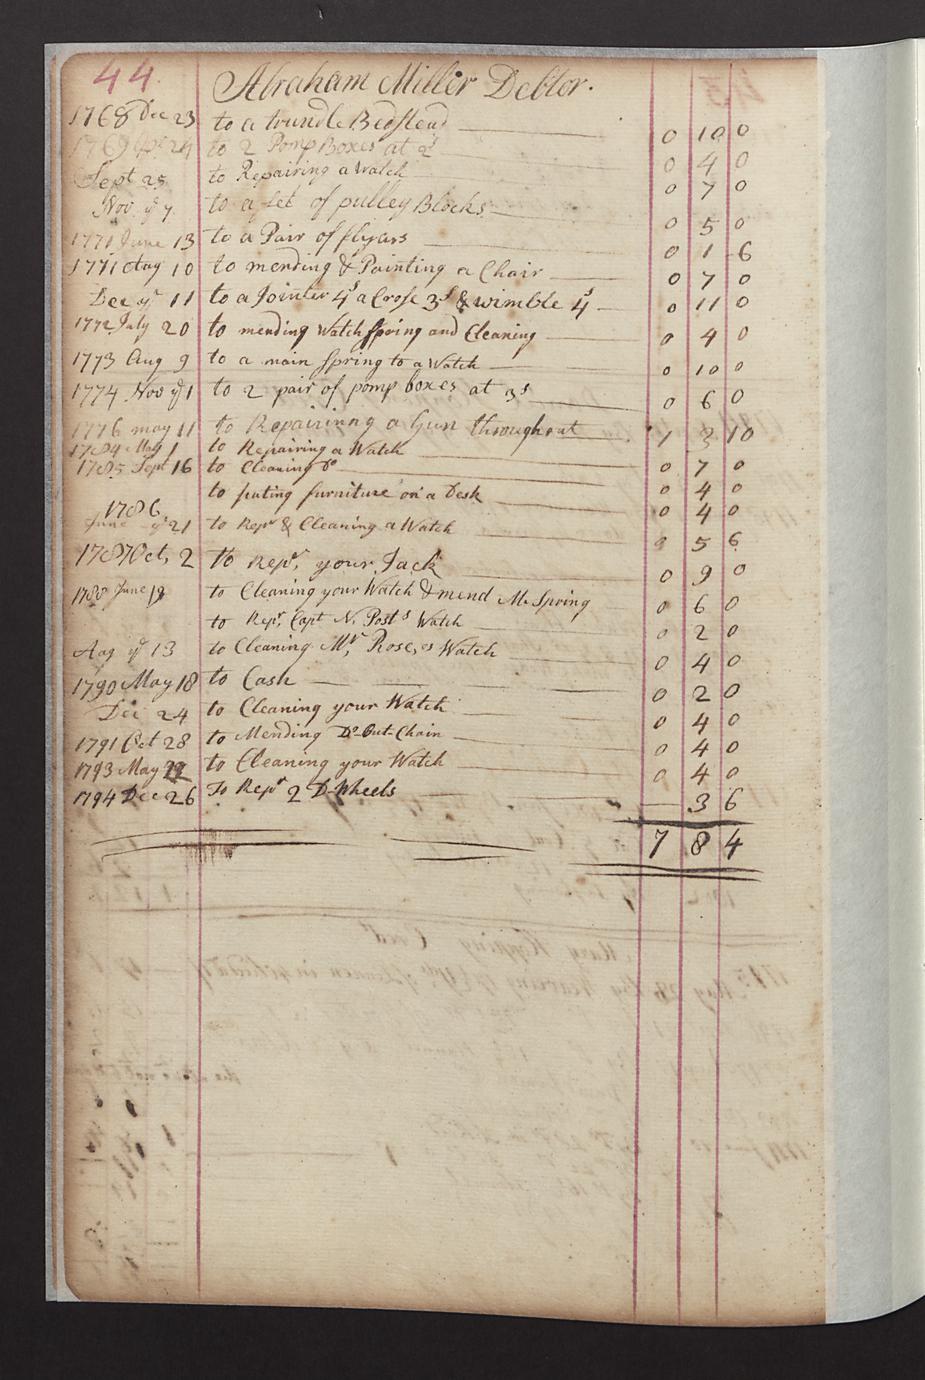 44. Abraham Miller Debtor.
1768 Dec 23 to a trundle Bedstead 0 10 0
1769 Apr 24 to 2 Pomp Boxes at 2s 0 4 0
Sept 25 to Repairing a Watch 0 7 0
Nov ye 7 to a set of pulley Blocks 0 5 0
1771 June 13 to a Pair of flyars 0 1 6
1771 Aug 10 to mending & Painting a Chair 0 7 0
Dec ye 11 to a Jointer 4s a Crose 3s & wimble 4s 0 11 0
1772 July 20 to mending Watch Spring and Cleaning 0 4 0
1773 Aug 9 to a main Spring to a Watch 0 10 0
1774 Nov ye 1 to 2 pair of pomp boxes at 3s 0 6 0
1776 may 11 to Repairinng a Gun throughout 1 3 10
1784 May 1 to Repairing a Watch 0 7 0
1785 Sept 16 to Cleaning Do 0 4 0
to puting furniture on a Desk 0 4 0
1786
June ye 21 to Repr & Cleaning a Watch 0 5 6
1787 Oct, 2 to Repr, your Jack 0 9 0
1788 June 18 to Cleaning your Watch & mend M. Spring 0 6 0
to Repr, Capt N. Posts Watch 0 2 0
Aug ye 13 to Cleaning Mr, Rose,s Watch 0 4 0
1790 May 18 to Cash 0 2 0
Dec 24 to Cleaning your Watch 0 4 0
1791 Oct 28 to Mending Do Chain 0 4 0
1793 May 22 to Cleaning your Watch 0 4 0
1794 Dec 26 To Repr 2 D-Wheels 3 6
7 8 4